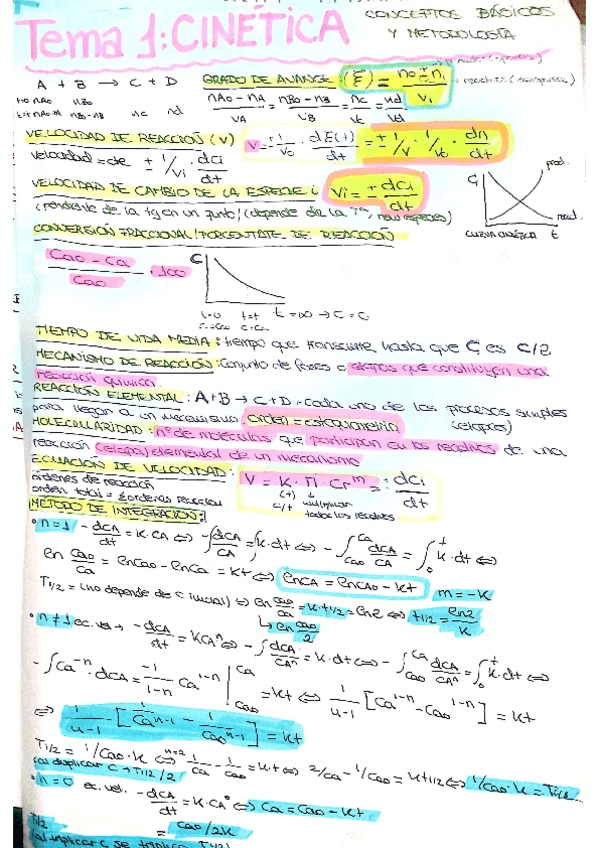 CONCEPTOS BÁSICOS
Tema 1: CINÉTICA Y METODOLOGÍA
A + B → C + D GRADO DE AVANCE (ξ) = n0 ± ni / νi
t=0 nA0 nB0
nc nd
nA0 - nA / νA = nB0 - nB / νB = nc / νc = nd / νd
VELOCIDAD DE REACCIÓN (v) v = ±1/V0 · dξ(t)/dt = ± 1/V · 1/V0 · dn/dt
velocidad = de ± 1/νi · dci/dt
VELOCIDAD DE CAMBIO DE LA ESPECIE i vi = ± dci/dt
(pendiente de la tg en un punto) (depende de la Tª, especies)
C prod.
reac.
CURVA CINÉTICA t
CONVERSIÓN FRACCIONAL / PORCENTAJE DE REACCIÓN
Ca0 - Ca / Ca0 · 100
C
t=0 t=t t=∞ → C = C
TIEMPO DE VIDA MEDIA: tiempo que transcurre hasta que C es C/2
MECANISMO DE REACCIÓN: Conjunto de fases o etapas que constituyen una
reacción química.
REACCIÓN ELEMENTAL: A+B → C+D. Cada uno de los procesos simples
para llegar a un mecanismo. orden = estequiometría (etapas)
MOLECULARIDAD: nº de moléculas que participan en los reactivos de una
reacción (etapa) elemental de un mecanismo
ECUACIÓN DE VELOCIDAD: V = K · Π Cr^m = ± dci/dt
órdenes de reacción
orden total = Σórdenes reacción
(t) ↓ multiplican
c/t todos los reactivos
MÉTODO DE INTEGRACIÓN:
• n=1 - dCA/dt = K·CA ⇔ -∫dCA/CA = ∫K·dt ⇔ -∫Ca0^Ca dCA/CA = ∫0^t K·dt ⇔
ln Ca0/Ca = lnCa0 - lnCa = Kt ⇔ lnCA = lnCA0 - Kt m = -K
T1/2 = (no depende de C inicial) ⇔ ln Ca0/Ca = K·t1/2 = ln2 ⇔ t1/2 = ln2/K
↳ ln Ca0/2
• n≠1 ec. vel → - dCA/dt = KCA^n ⇔ -∫dCA/CA^n = ∫K·dt ⇔ -∫Ca0^Ca dCA/CA^n = ∫0^t K·dt ⇔
-∫Ca^-n · dCA = -1/1-n Ca^1-n |Ca0^Ca = Kt ⇔ 1/n-1 [Ca^1-n - Ca0^1-n] = Kt
⇔ 1/n-1 [1/Ca^n-1 - 1/Ca0^n-1] = Kt
T1/2 = 1/Ca0·K ⇔ n=2 1/Ca - 1/Ca0 = K·t ⇔ 2/Ca - 1/Ca0 = Kt1/2 ⇔ 1/Ca0·K = T1/2
(al duplicar C → T1/2 /2)
• n=0 ec. vel. - dCA/dt = K·CA^0 ⇔ Ca = Ca0 - Kt
T1/2 = Ca0/2K
(al triplicar C se triplica T1/2)